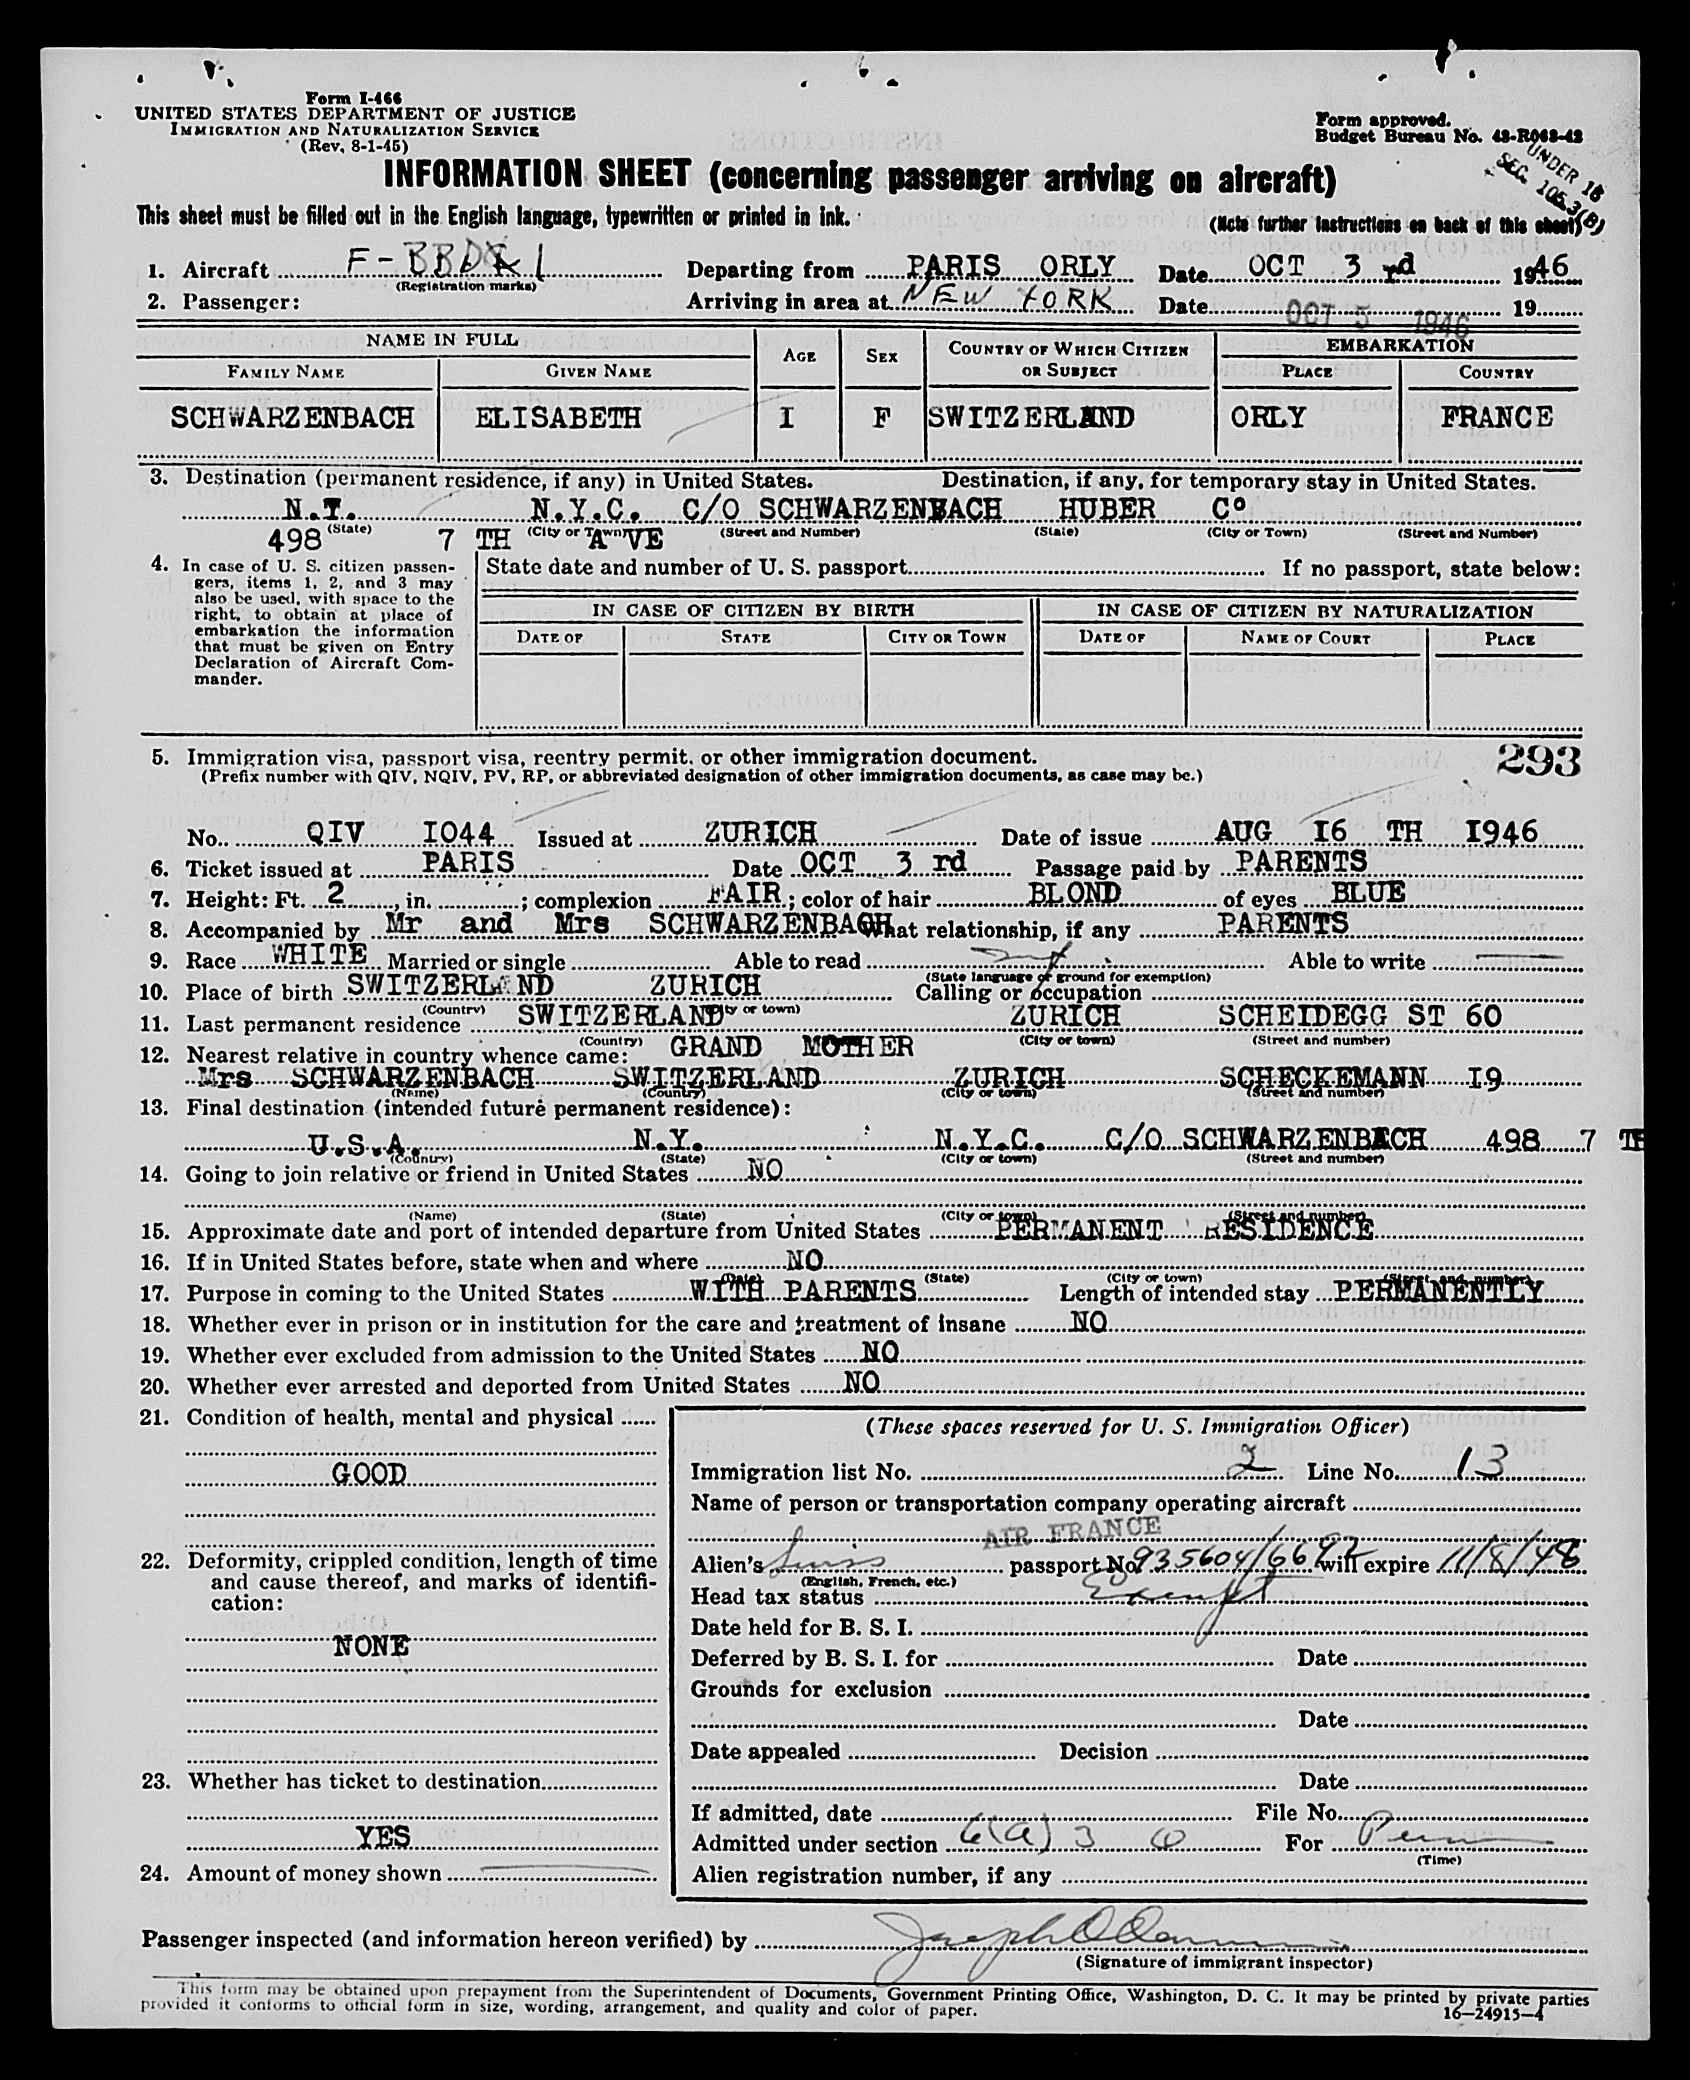 Form I-466
UNITED STATES DEPARTMENT OF JUSTICE
IMMIGRATION AND NATURALIZATION SERVICE
(Rev. 8-1-45)
Form approved.
Budget Bureau No. 43-R063-42
UNDER 16
SEC. 105.3(B)
INFORMATION SHEET (concerning passenger arriving on aircraft)
This sheet must be filled out in the English language, typewritten or printed in ink.
(Note further instructions on back of this sheet)
1. Aircraft Departing from PARIS ORLY Date OCT 3 rd 1946
(Registration marks)
2. Passenger: Arriving in area at NEW YORK Date OCT 5 1946 19
NAME IN FULL AGE SEX COUNTRY OF WHICH CITIZEN OR SUBJECT EMBARKATION
FAMILY NAME GIVEN NAME PLACE COUNTRY
SCHWARZENBACH ELISABETH I F SWITZERLAND ORLY FRANCE
3. Destination (permanent residence, if any) in United States. Destination, if any, for temporary stay in United States.
N.Y. N.Y.C. C/O SCHWARZENBACH HUBER Co
(State) (City or Town) (Street and Number) (State) (City or Town) (Street and Number)
498 7 TH AVE
4. In case of U. S. citizen passen-
gers, items 1, 2, and 3 may
also be used, with space to the
right, to obtain at place of
embarkation the information
that must be given on Entry
Declaration of Aircraft Com-
mander.
State date and number of U. S. passport If no passport, state below:
IN CASE OF CITIZEN BY BIRTH IN CASE OF CITIZEN BY NATURALIZATION
DATE OF STATE CITY OR TOWN DATE OF NAME OF COURT PLACE
293
5. Immigration visa, passport visa, reentry permit, or other immigration document.
(Prefix number with QIV, NQIV, PV, RP, or abbreviated designation of other immigration documents, as case may be.)
No. QIV I044 Issued at ZURICH Date of issue AUG I6 TH I946
6. Ticket issued at PARIS Date OCT 3 rd Passage paid by PARENTS
7. Height: Ft. 2, in. ; complexion FAIR; color of hair BLOND of eyes BLUE
8. Accompanied by Mr and Mrs SCHWARZENBACH What relationship, if any PARENTS
9. Race WHITE Married or single Able to read Able to write
(State language or ground for exemption)
10. Place of birth SWITZERLAND ZURICH Calling or occupation
(Country) (City or town)
11. Last permanent residence SWITZERLAND ZURICH SCHEIDEGG ST 60
(Country) (City or town) (Street and number)
12. Nearest relative in country whence came: GRAND MOTHER
Mrs SCHWARZENBACH SWITZERLAND ZURICH SCHECKEMANN I9
(Name) (Country) (City or town) (Street and number)
13. Final destination (intended future permanent residence):
U.S.A. N.Y. N.Y.C. C/O SCHWARZENBACH 498 7 TH
(Country) (State) (City or town) (Street and number)
14. Going to join relative or friend in United States NO
(Name) (State) (City or town) (Street and number)
15. Approximate date and port of intended departure from United States PERMANENT RESIDENCE
16. If in United States before, state when and where NO
(Date) (State) (City or town) (Street and number)
17. Purpose in coming to the United States WITH PARENTS Length of intended stay PERMANENTLY
18. Whether ever in prison or in institution for the care and treatment of insane NO
19. Whether ever excluded from admission to the United States NO
20. Whether ever arrested and deported from United States NO
21. Condition of health, mental and physical
GOOD
22. Deformity, crippled condition, length of time
and cause thereof, and marks of identifi-
cation:
NONE
23. Whether has ticket to destination
YES
24. Amount of money shown
(These spaces reserved for U. S. Immigration Officer)
Immigration list No. 2 Line No. 13
Name of person or transportation company operating aircraft
AIR FRANCE
Alien's Swiss passport No. 935604/6692 will expire 11/8/48
(English, French, etc.)
Head tax status Exempt
Date held for B. S. I.
Deferred by B. S. I. for Date
Grounds for exclusion
Date
Date appealed Decision
Date
If admitted, date File No.
Admitted under section 6(a) 3 For Perm
(Time)
Alien registration number, if any
Passenger inspected (and information hereon verified) by
(Signature of immigrant inspector)
This form may be obtained upon prepayment from the Superintendent of Documents, Government Printing Office, Washington, D. C. It may be printed by private parties
provided it conforms to official form in size, wording, arrangement, and quality and color of paper.
16—24915-4